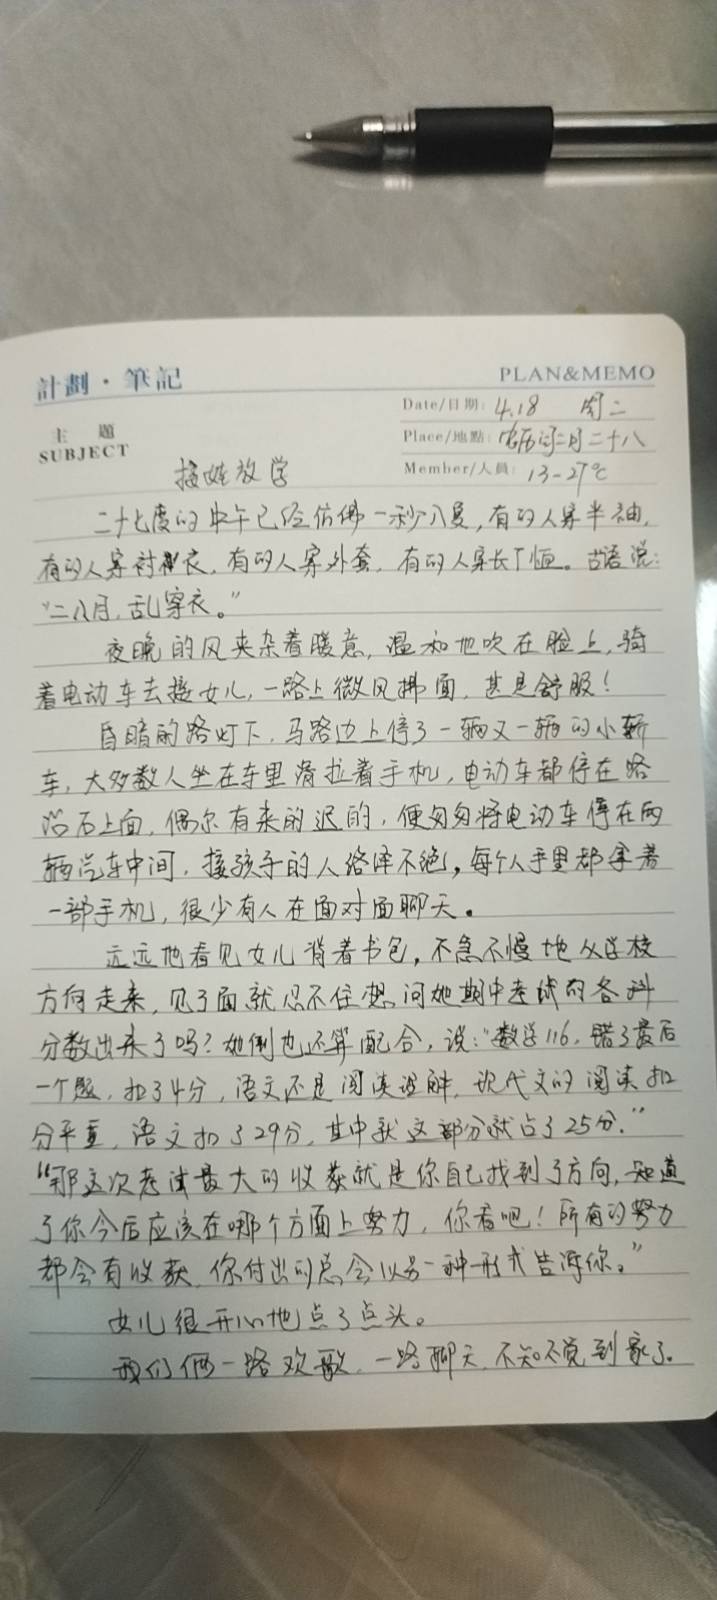 計劃・筆記
PLAN&MEMO
Date/日期: 4.18 周二
主題
SUBJECT
Place/地點: 农历闰二月二十八
Member/人員: 13-27℃
接娃放学
二十七度的中午已经仿佛一秒入夏,有的人穿半袖,
有的人穿衬衣,有的人穿外套,有的人穿长T恤。古语说:
“二八月,乱穿衣。”
夜晚的风夹杂着暖意,温和地吹在脸上,骑
着电动车去接女儿,一路上微风拂面,甚是舒服!
昏暗的路灯下,马路边上停了一辆又一辆的小轿
车,大多数人坐在车里滑拉着手机,电动车都停在路
沿石上面,偶尔有来的迟的,便匆匆将电动车停在两
辆汽车中间,接孩子的人络绎不绝,每个人手里都拿着
一部手机,很少有人在面对面聊天。
远远地看见女儿背着书包,不急不慢地从学校
方向走来,见了面就忍不住想问她期中考试的各科
分数出来了吗?她倒也还算配合,说:“数学116,错了最后
一个题,扣了4分,语文还是阅读理解,现代文的阅读扣
分严重,语文扣了29分,其中就这部分就占了25分.”
“那这次考试最大的收获就是你自己找到了方向,知道
了你今后应该在哪个方面上努力,你看吧!所有的努力
都会有收获,你付出的总会以另一种形式告诉你。”
女儿很开心地点了点头。
我们俩一路欢歌,一路聊天,不知不觉到家了。